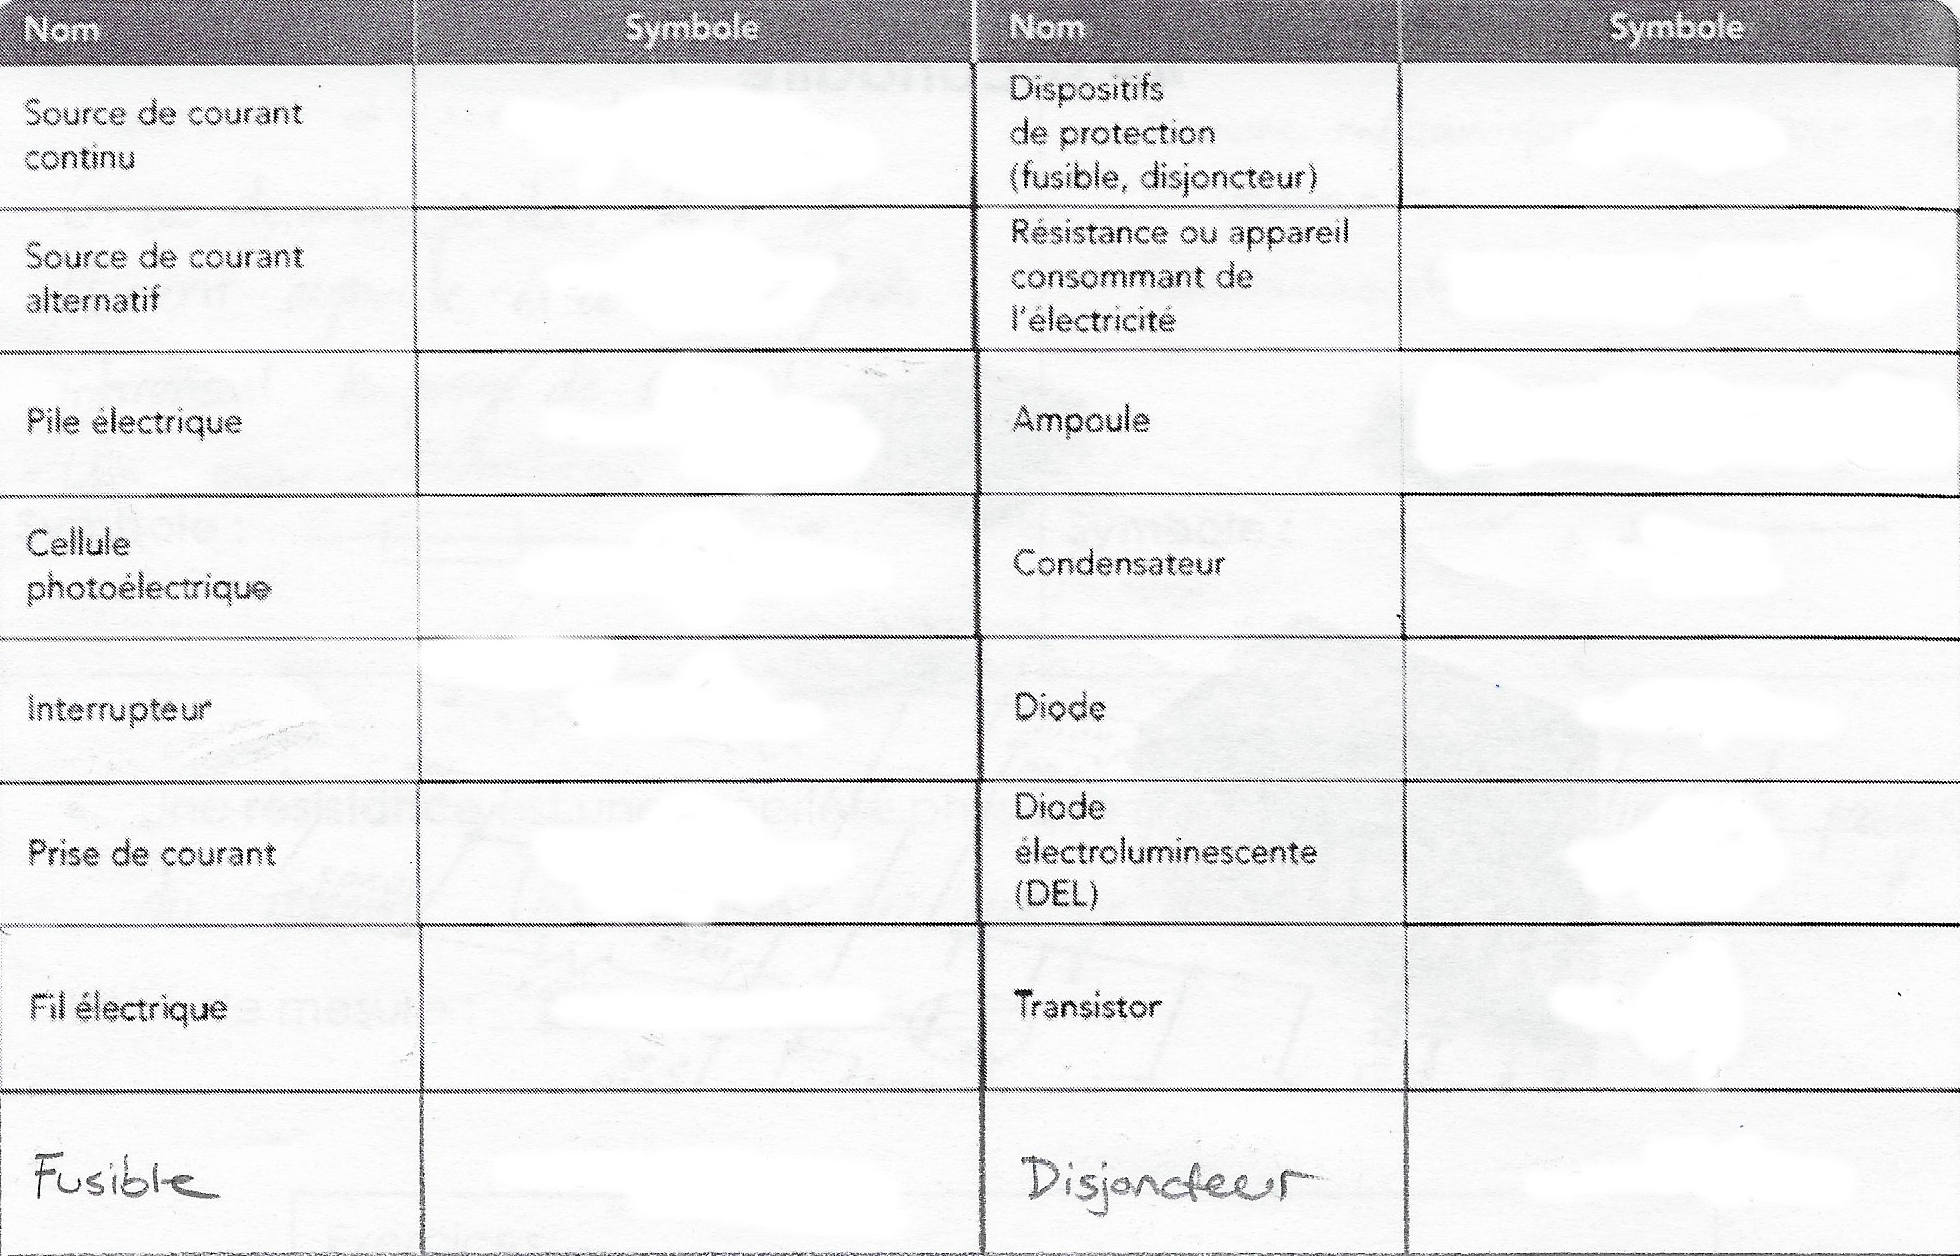 Nom Symbole Nom Symbole
Source de courant
continu
Dispositifs
de protection
(fusible, disjoncteur)
Source de courant
alternatif
Résistance ou appareil
consommant de
l'électricité
Pile électrique
Ampoule
Cellule
photoélectrique
Condensateur
Interrupteur
Diode
Prise de courant
Diode
électroluminescente
(DEL)
Fil électrique
Transistor
Fusible
Disjoncteur